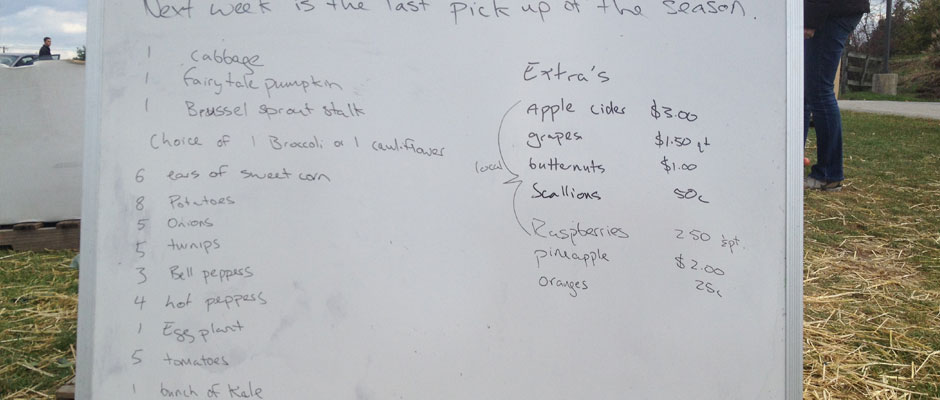 Next week is the last pick up of the season.
1 cabbage
1 fairytale pumpkin
1 Brussel sprout stalk
Choice of 1 Broccoli or 1 cauliflower
6 ears of sweet corn
8 Potatoes
5 Onions
5 turnips
3 Bell peppers
4 hot peppers
1 Eggplant
5 tomatoes
1 bunch of Kale
Extra's
local
Apple cider $3.00
grapes $1.50 qt
butternuts $1.00
Scallions 50c
Raspberries 250 ½pt.
pineapple $2.00
oranges 25c